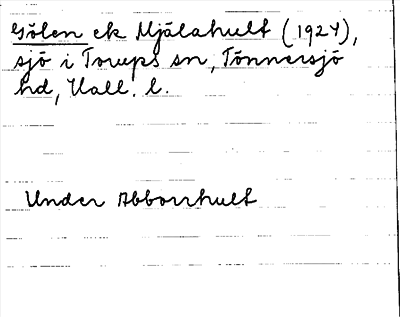 Gölen ek Mjälahult (1924),
sjö i Torups sn, Tönnersjö
hd, Hall. l.
Under Abborrhult